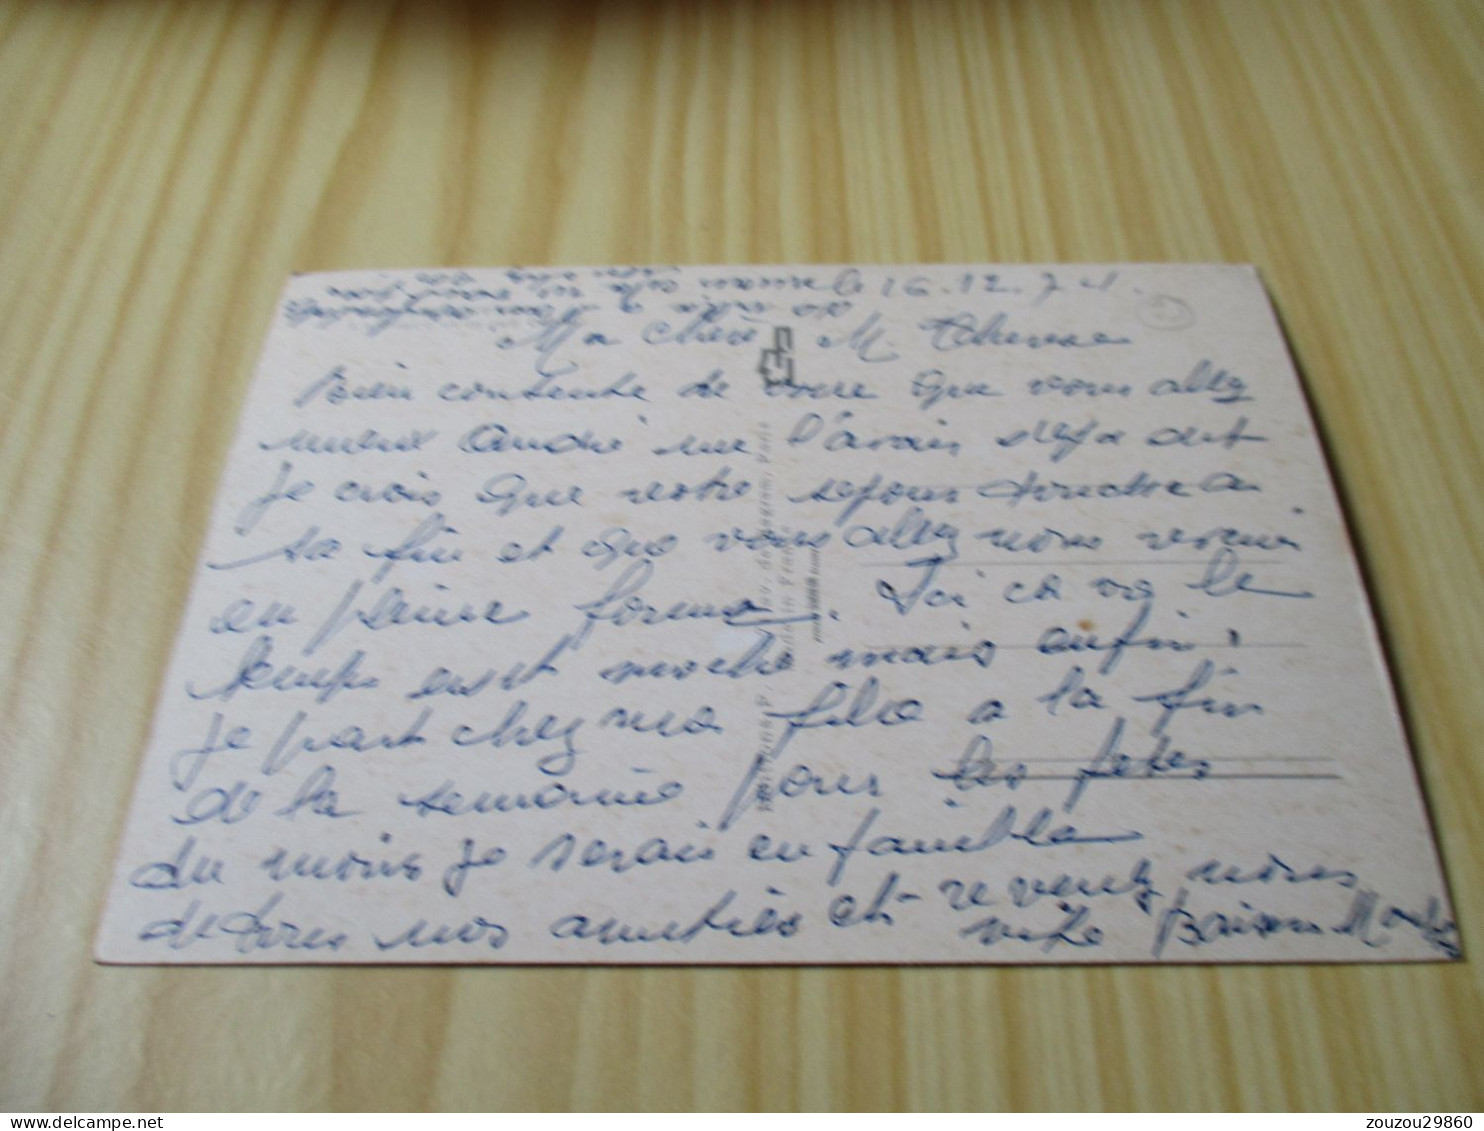 le 16.12.71.
Ma chère M. Therese
Bien contente de voire que vous allez
mieux André me l'avais deja dit
Je crois que votre sejour touche a
sa fin et que vous allez nous revenir
en pleine forme. Ici ca va le
temps est moche mais enfin.
je part chez ma fille a la fin
de la semaine pour les fetes
du moins je serai en famille
de tous nos amitiés et revenez nous
vite Baisers
zouzou29860